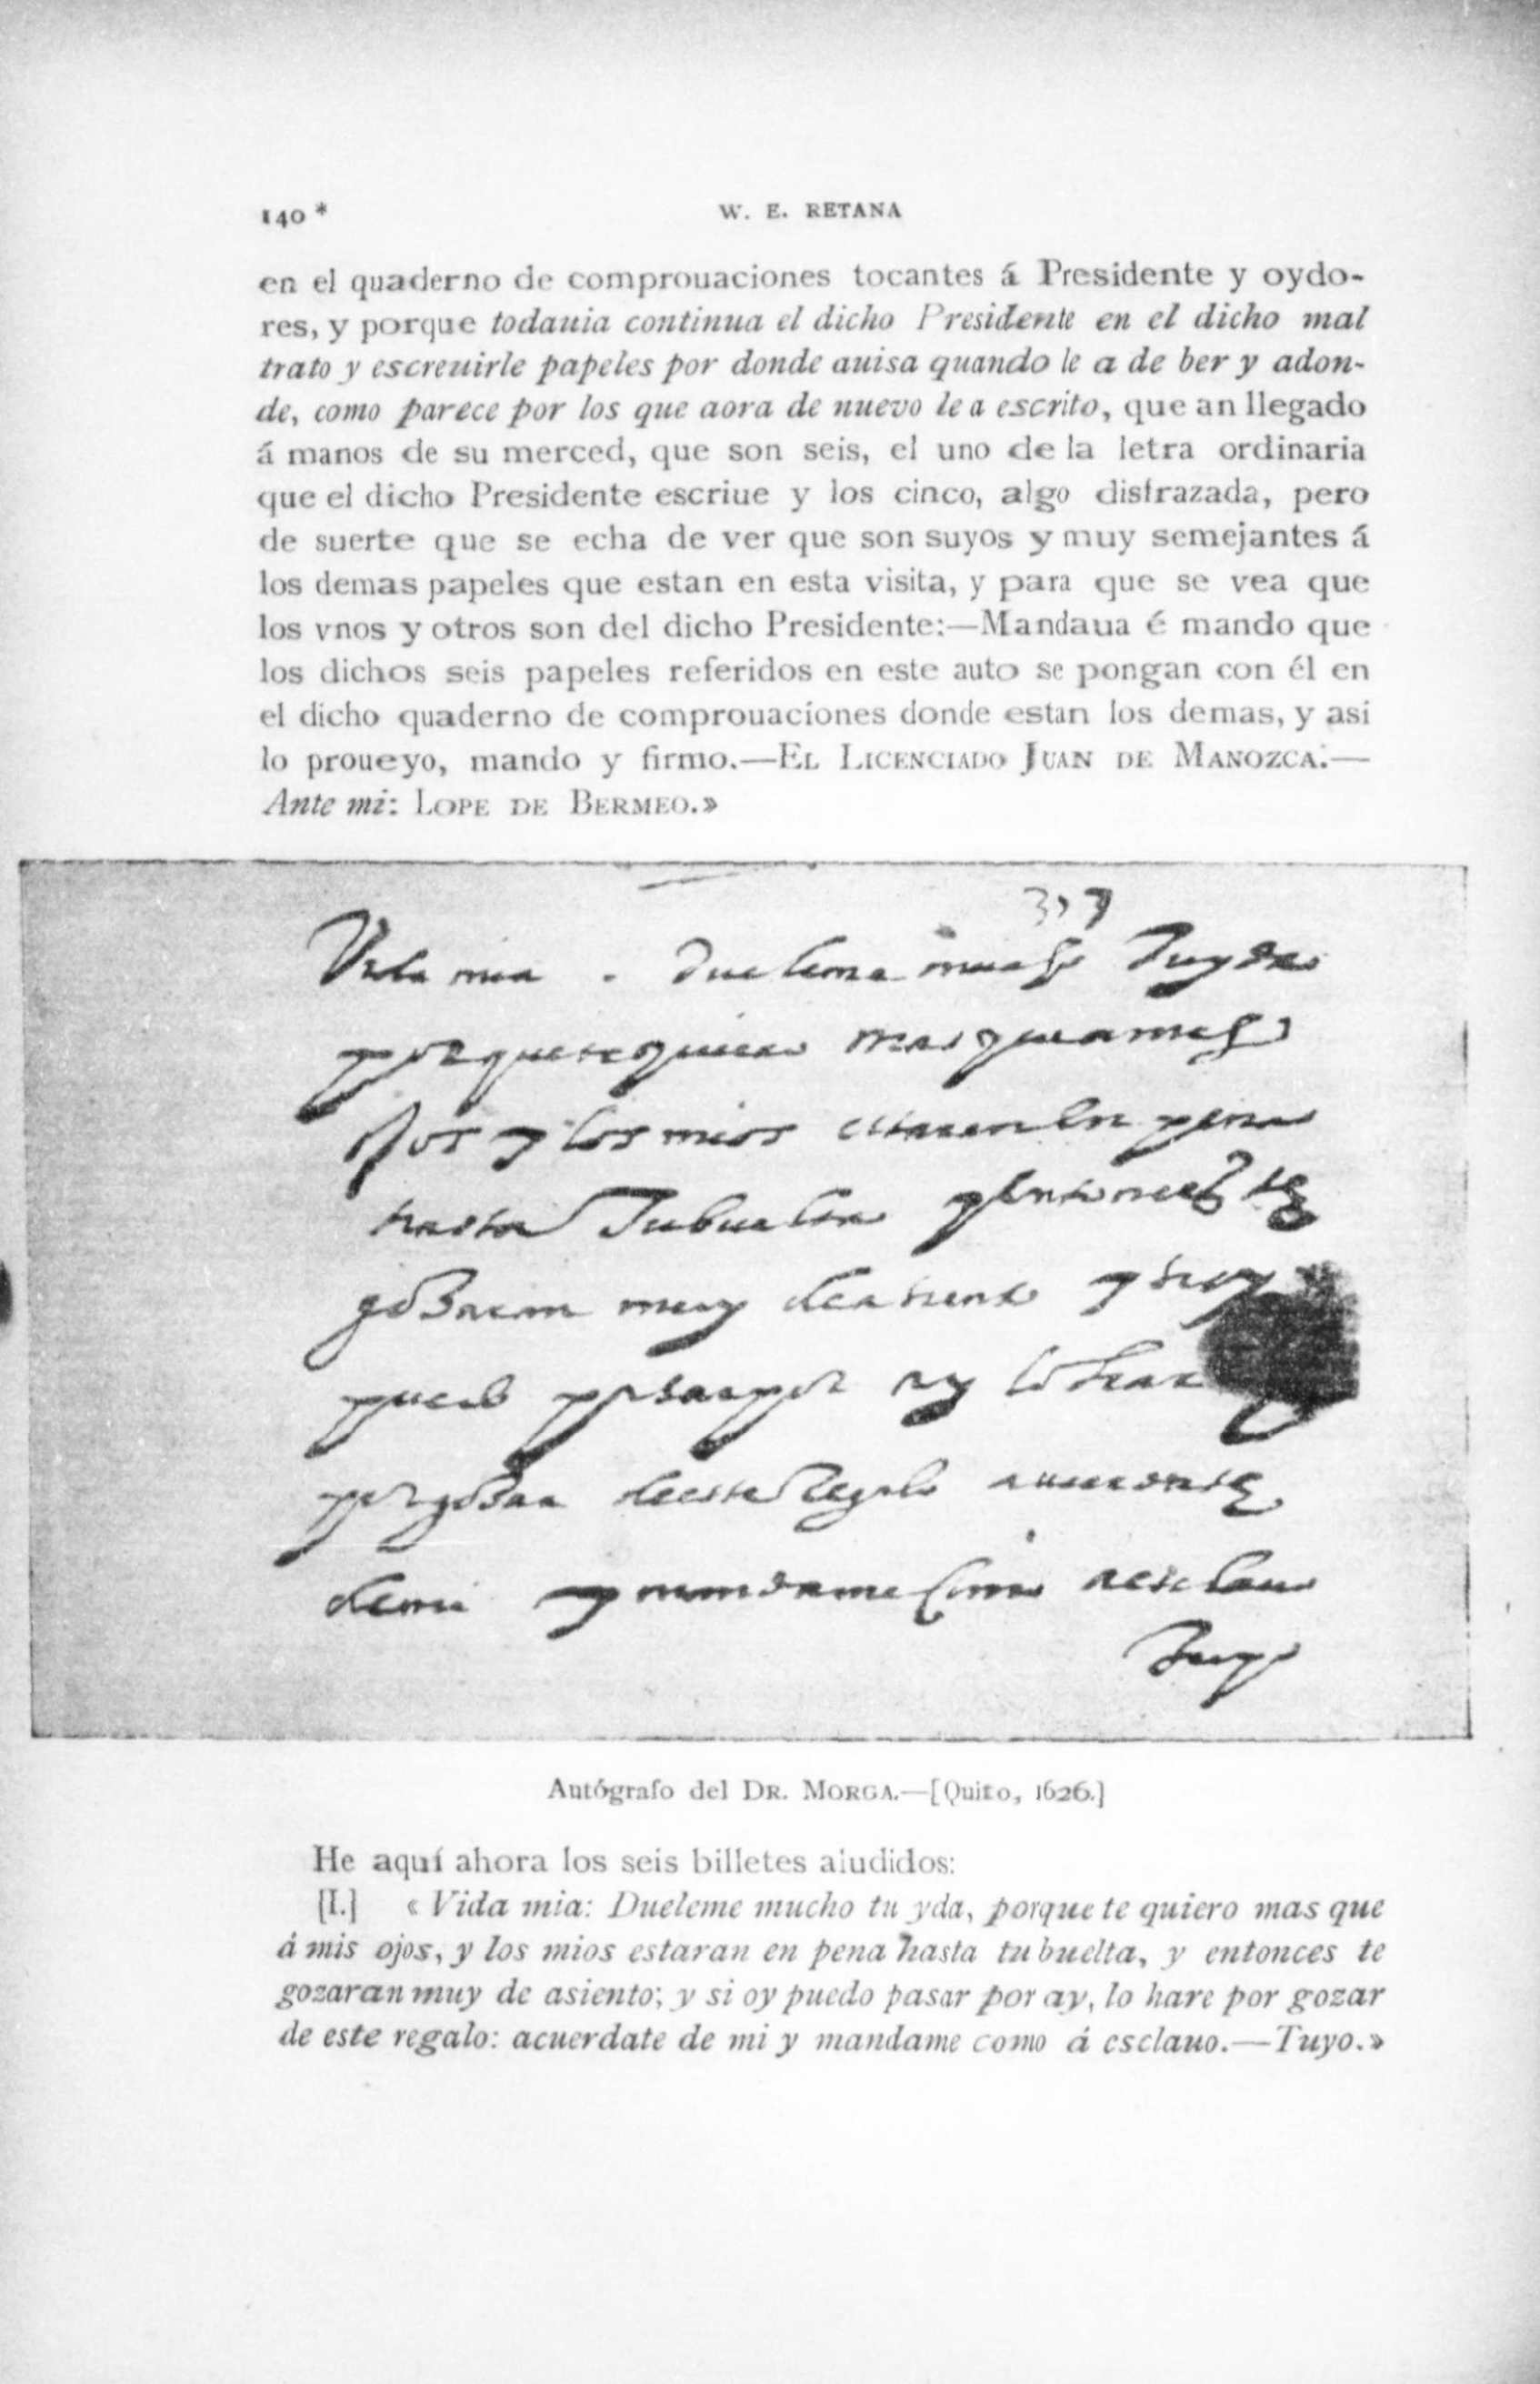 140 *
W. E. RETANA
en el quaderno de comprouaciones tocantes á Presidente y oydo-
res, y porque todauia continua el dicho Presidente en el dicho mal
trato y escreuirle papeles por donde auisa quando le a de ber y adon-
de, como parece por los que aora de nuevo le a escrito, que an llegado
á manos de su merced, que son seis, el uno de la letra ordinaria
que el dicho Presidente escriue y los cinco, algo disfrazada, pero
de suerte que se echa de ver que son suyos y muy semejantes á
los demas papeles que estan en esta visita, y para que se vea que
los vnos y otros son del dicho Presidente:—Mandaua é mando que
los dichos seis papeles referidos en este auto se pongan con él en
el dicho quaderno de comprouaciones donde estan los demas, y asi
lo proueyo, mando y firmo.—EL LICENCIADO JUAN DE MANOZCA.—
Ante mi: LOPE DE BERMEO.»
Vida mia . Dueleme mucho tu yda
porque te quiero mas que a mis
ojos y los mios estaran en pena
hasta tu buelta y entonces te
gozaran muy de asiento y si oy
puedo pasar por ay lo hare
por gozar de este regalo acuerdate
de mi y mandame como a esclauo
Tuyo
Autógrafo del DR. MORGA.—[Quito, 1626.]
He aquí ahora los seis billetes aludidos:
[I.] «Vida mia: Dueleme mucho tu yda, porque te quiero mas que
á mis ojos, y los mios estaran en pena hasta tu buelta, y entonces te
gozaran muy de asiento; y si oy puedo pasar por ay, lo hare por gozar
de este regalo: acuerdate de mi y mandame como á esclauo.—Tuyo.»